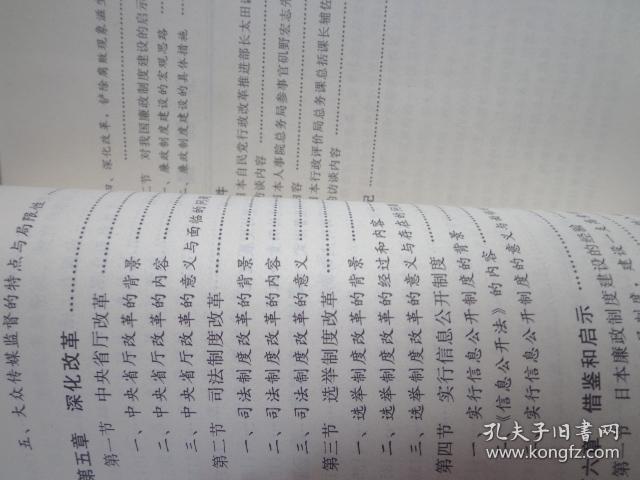 五、大众传媒监督的特点与局限性
第五章 深化改革
第一节 中央省厅改革
一、中央省厅改革的背景
二、中央省厅改革的内容
三、中央省厅改革的意义与面临的
第二节 司法制度改革
一、司法制度改革的背景
二、司法制度改革的内容
三、司法制度改革的意义
第三节 选举制度改革
一、选举制度改革的背景
二、选举制度改革的经过和内容
三、选举制度改革的意义与存在的
第四节 实行信息公开制度
一、实行信息公开制度的背景
《信息公开法》的内容
实行信息公开制度的意义与
六章 借鉴和启示
日本廉政制度建设的经验
深化改革，铲除腐败现象滋生
二节 对我国廉政制度建设的启示
一、廉政制度建设的宏观思路
廉政制度建设的具体措施
件
日本自民党行政改革推进部长太田
的访谈内容
日本人事院总务局参事官矶野宏志先
内容
日本行政评价局总务课总括课长辅佐
的访谈内容
记
孔夫子旧书网
www.kongfz.com